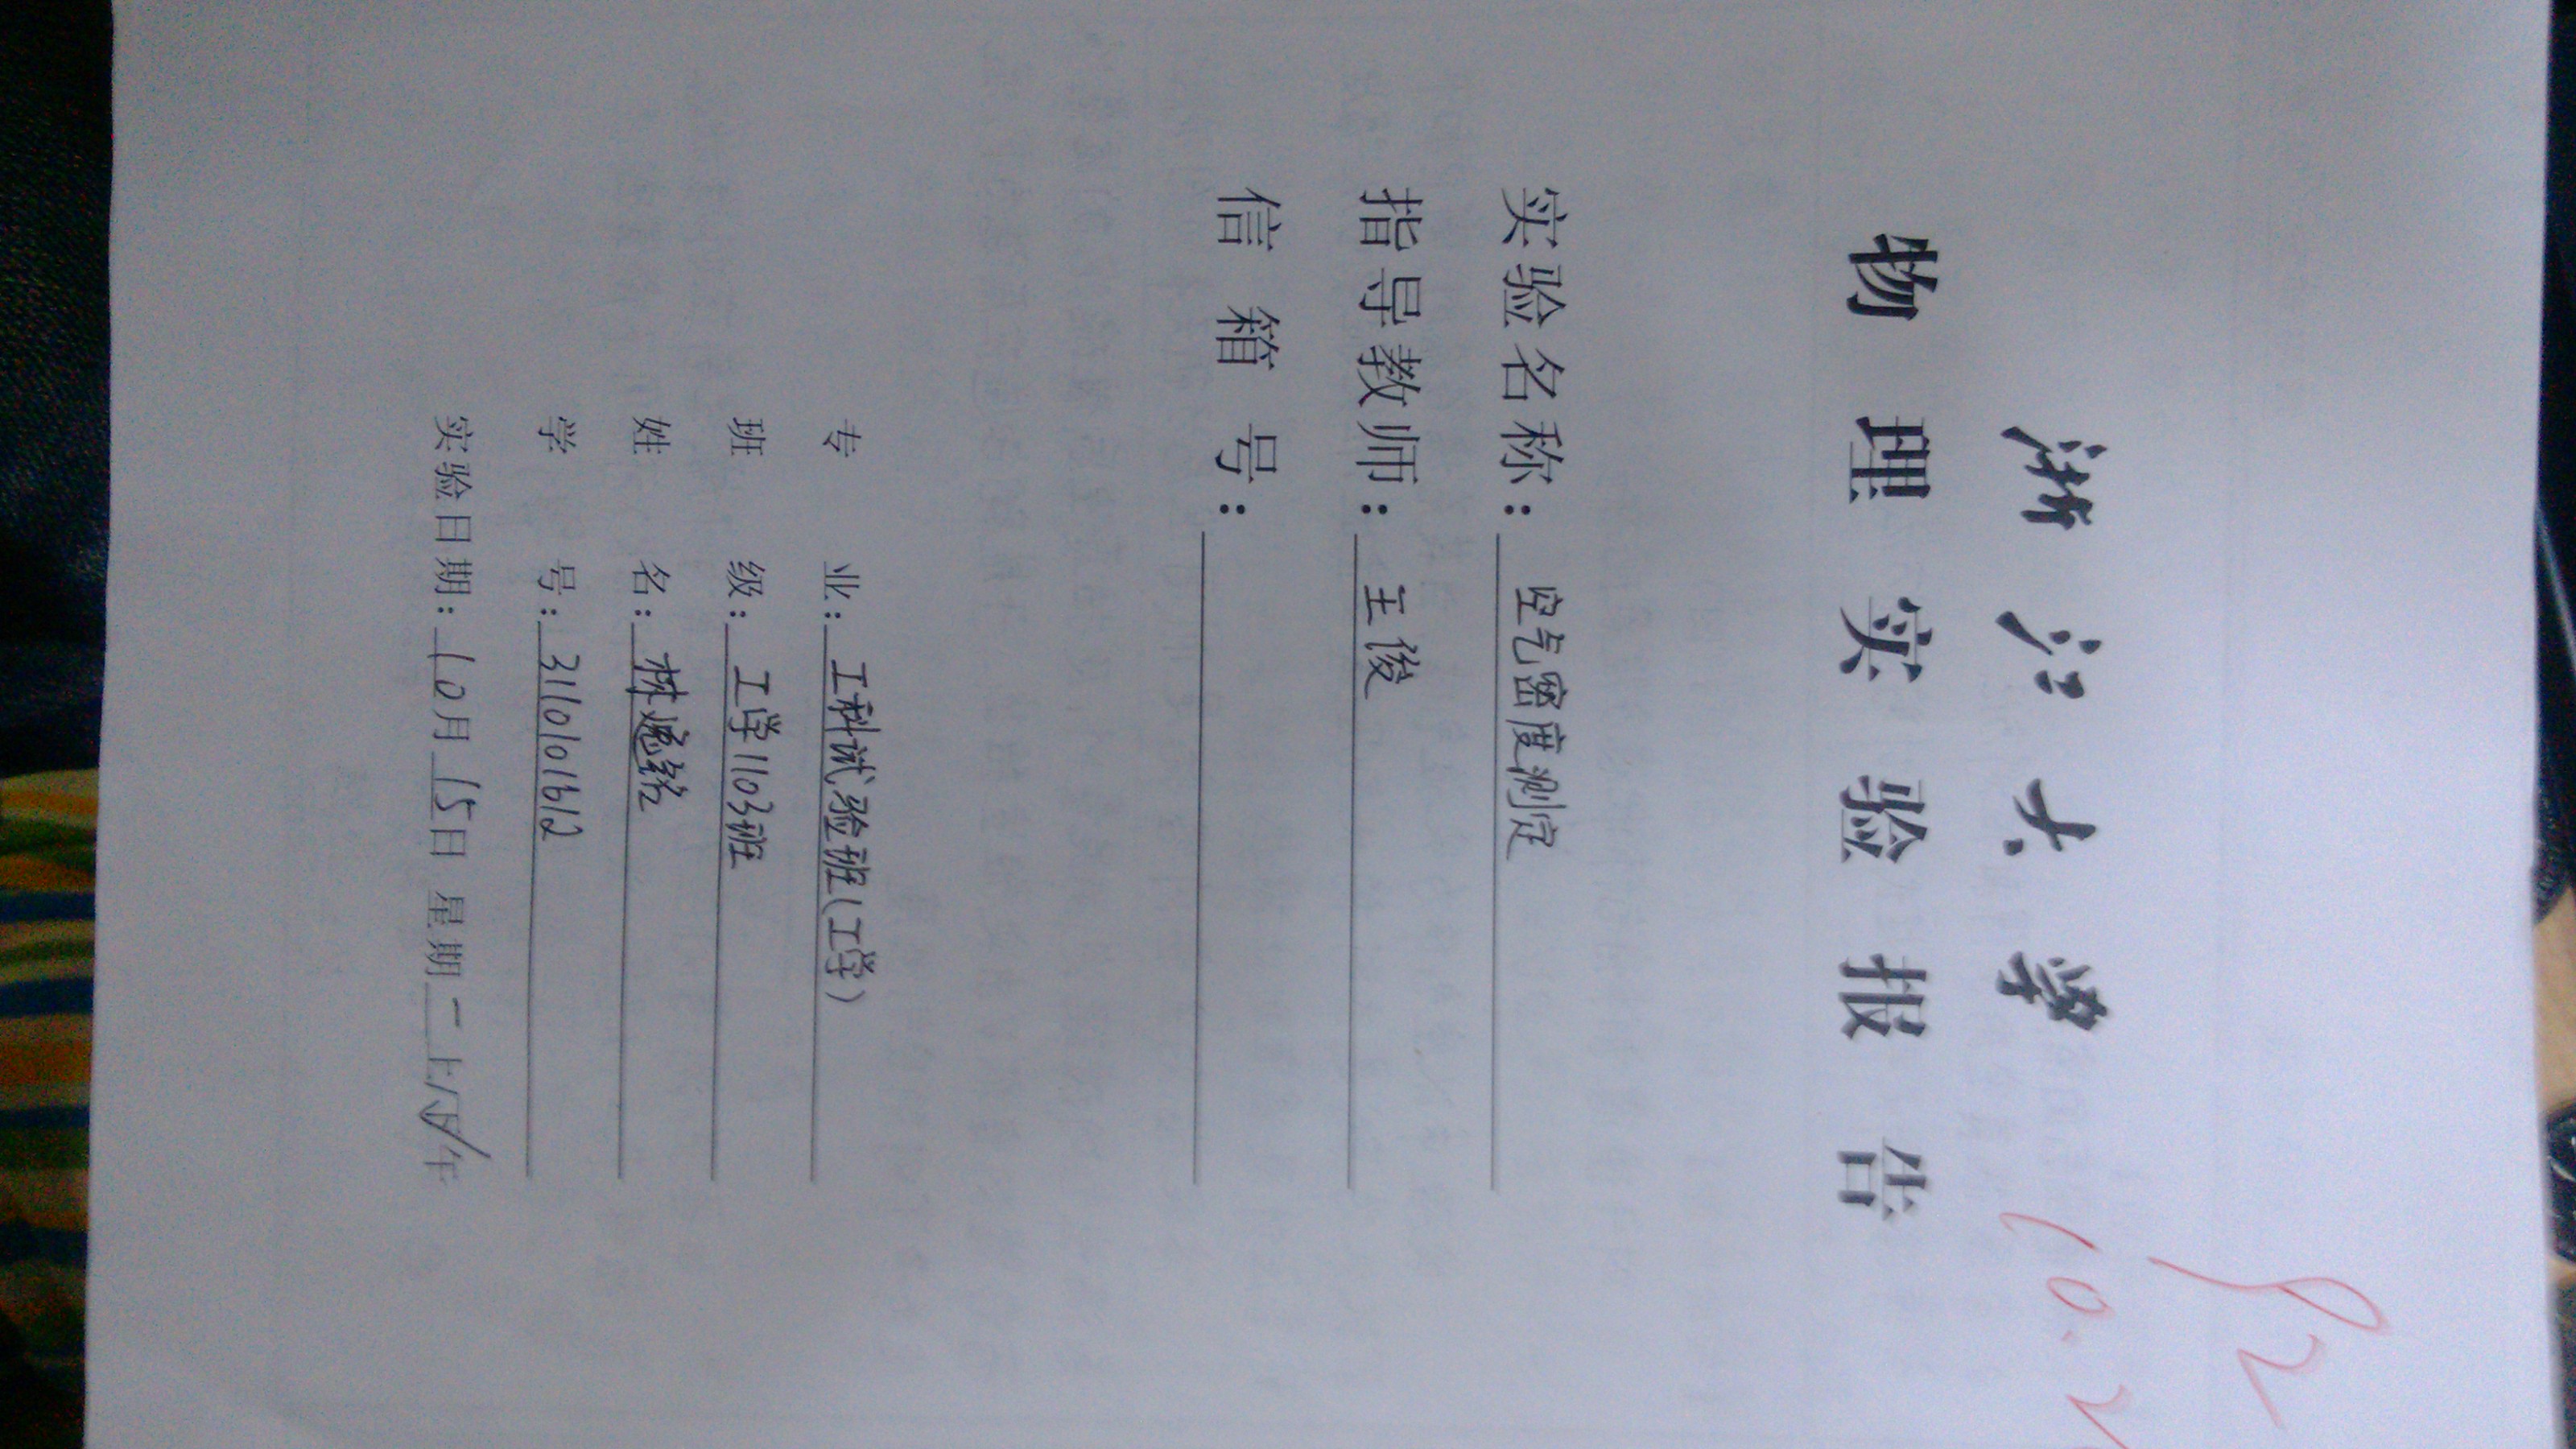 浙江大学
92
物理实验报告
10.2
实验名称：空气密度测定
指导教师：王俊
信箱号：
专业：工科试验班（工学）
班级：工学1103班
姓名：林
学号：3110101612
实验日期：10月15日 星期一 上/下午